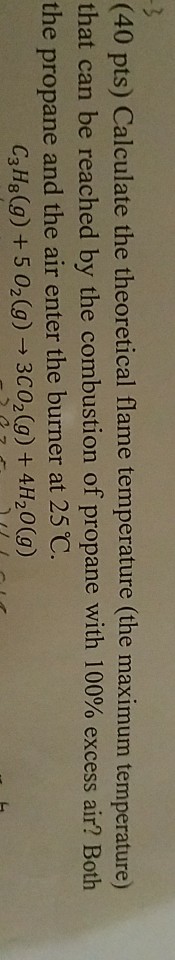 (40 pts) Calculate the theoretical flame temperature (the maximum temperature)
that can be reached by the combustion of propane with 100% excess air? Both
the propane and the air enter the burner at 25℃.
C₃H₈(g) + 5 O₂(g) → 3CO₂(g) + 4H₂O(g)